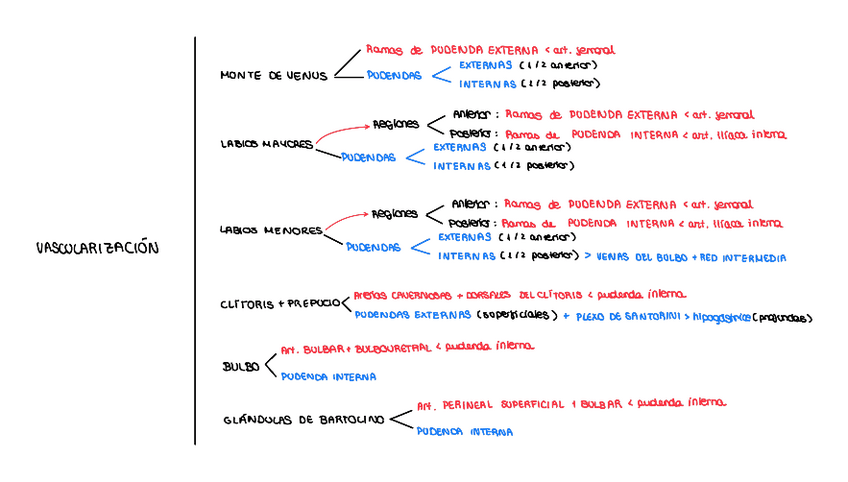 VASCULARIZACIÓN
MONTE DE VENUS
Ramas de PUDENDA EXTERNA < art. femoral
PUDENDAS
EXTERNAS (1/2 anterior)
INTERNAS (1/2 posterior)
LABIOS MAYORES
Regiones
Anterior: Ramas de PUDENDA EXTERNA < art. femoral
Posterior: Ramas de PUDENDA INTERNA < art. Ilíaca interna
PUDENDAS
EXTERNAS (1/2 anterior)
INTERNAS (1/2 posterior)
LABIOS MENORES
Regiones
Anterior: Ramas de PUDENDA EXTERNA < art. femoral
Posterior: Ramas de PUDENDA INTERNA < art. Ilíaca interna
PUDENDAS
EXTERNAS (1/2 anterior)
INTERNAS (1/2 posterior) > VENAS DEL BULBO + RED INTERMEDIA
CLÍTORIS + PREPUCIO
Arterias CAVERNOSAS + DORSALES DEL CLÍTORIS < pudenda interna
PUDENDAS EXTERNAS (superficiales) + PLEXO DE SANTORINI > hipogástrica (profundas)
BULBO
Art. BULBAR + BULBOURETRAL < pudenda interna
PUDENDA INTERNA
GLÁNDULAS DE BARTOLINO
Art. PERINEAL SUPERFICIAL + BULBAR < pudenda interna
PUDENDA INTERNA